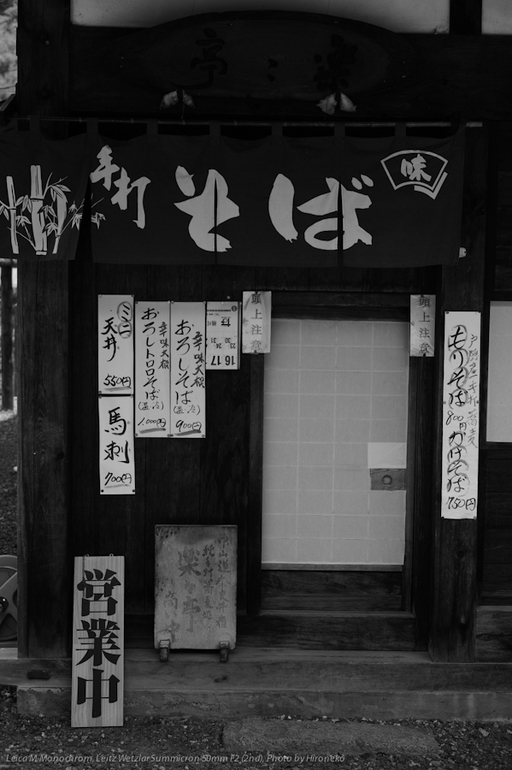 楽々亭
手打
そば
味
ミニ
天丼
550円
馬刺
700円
辛味大根
おろしトロロそば
(温・冷)
1,000円
辛味大根
おろしそば
(温・冷)
900円
頭上注意
頭上注意
もりそば
800円
かけそば
750円
営業中
Leica M Monochrom, Leitz Wetzlar Summicron 50mm F2 (2nd), Photo by Hironeko